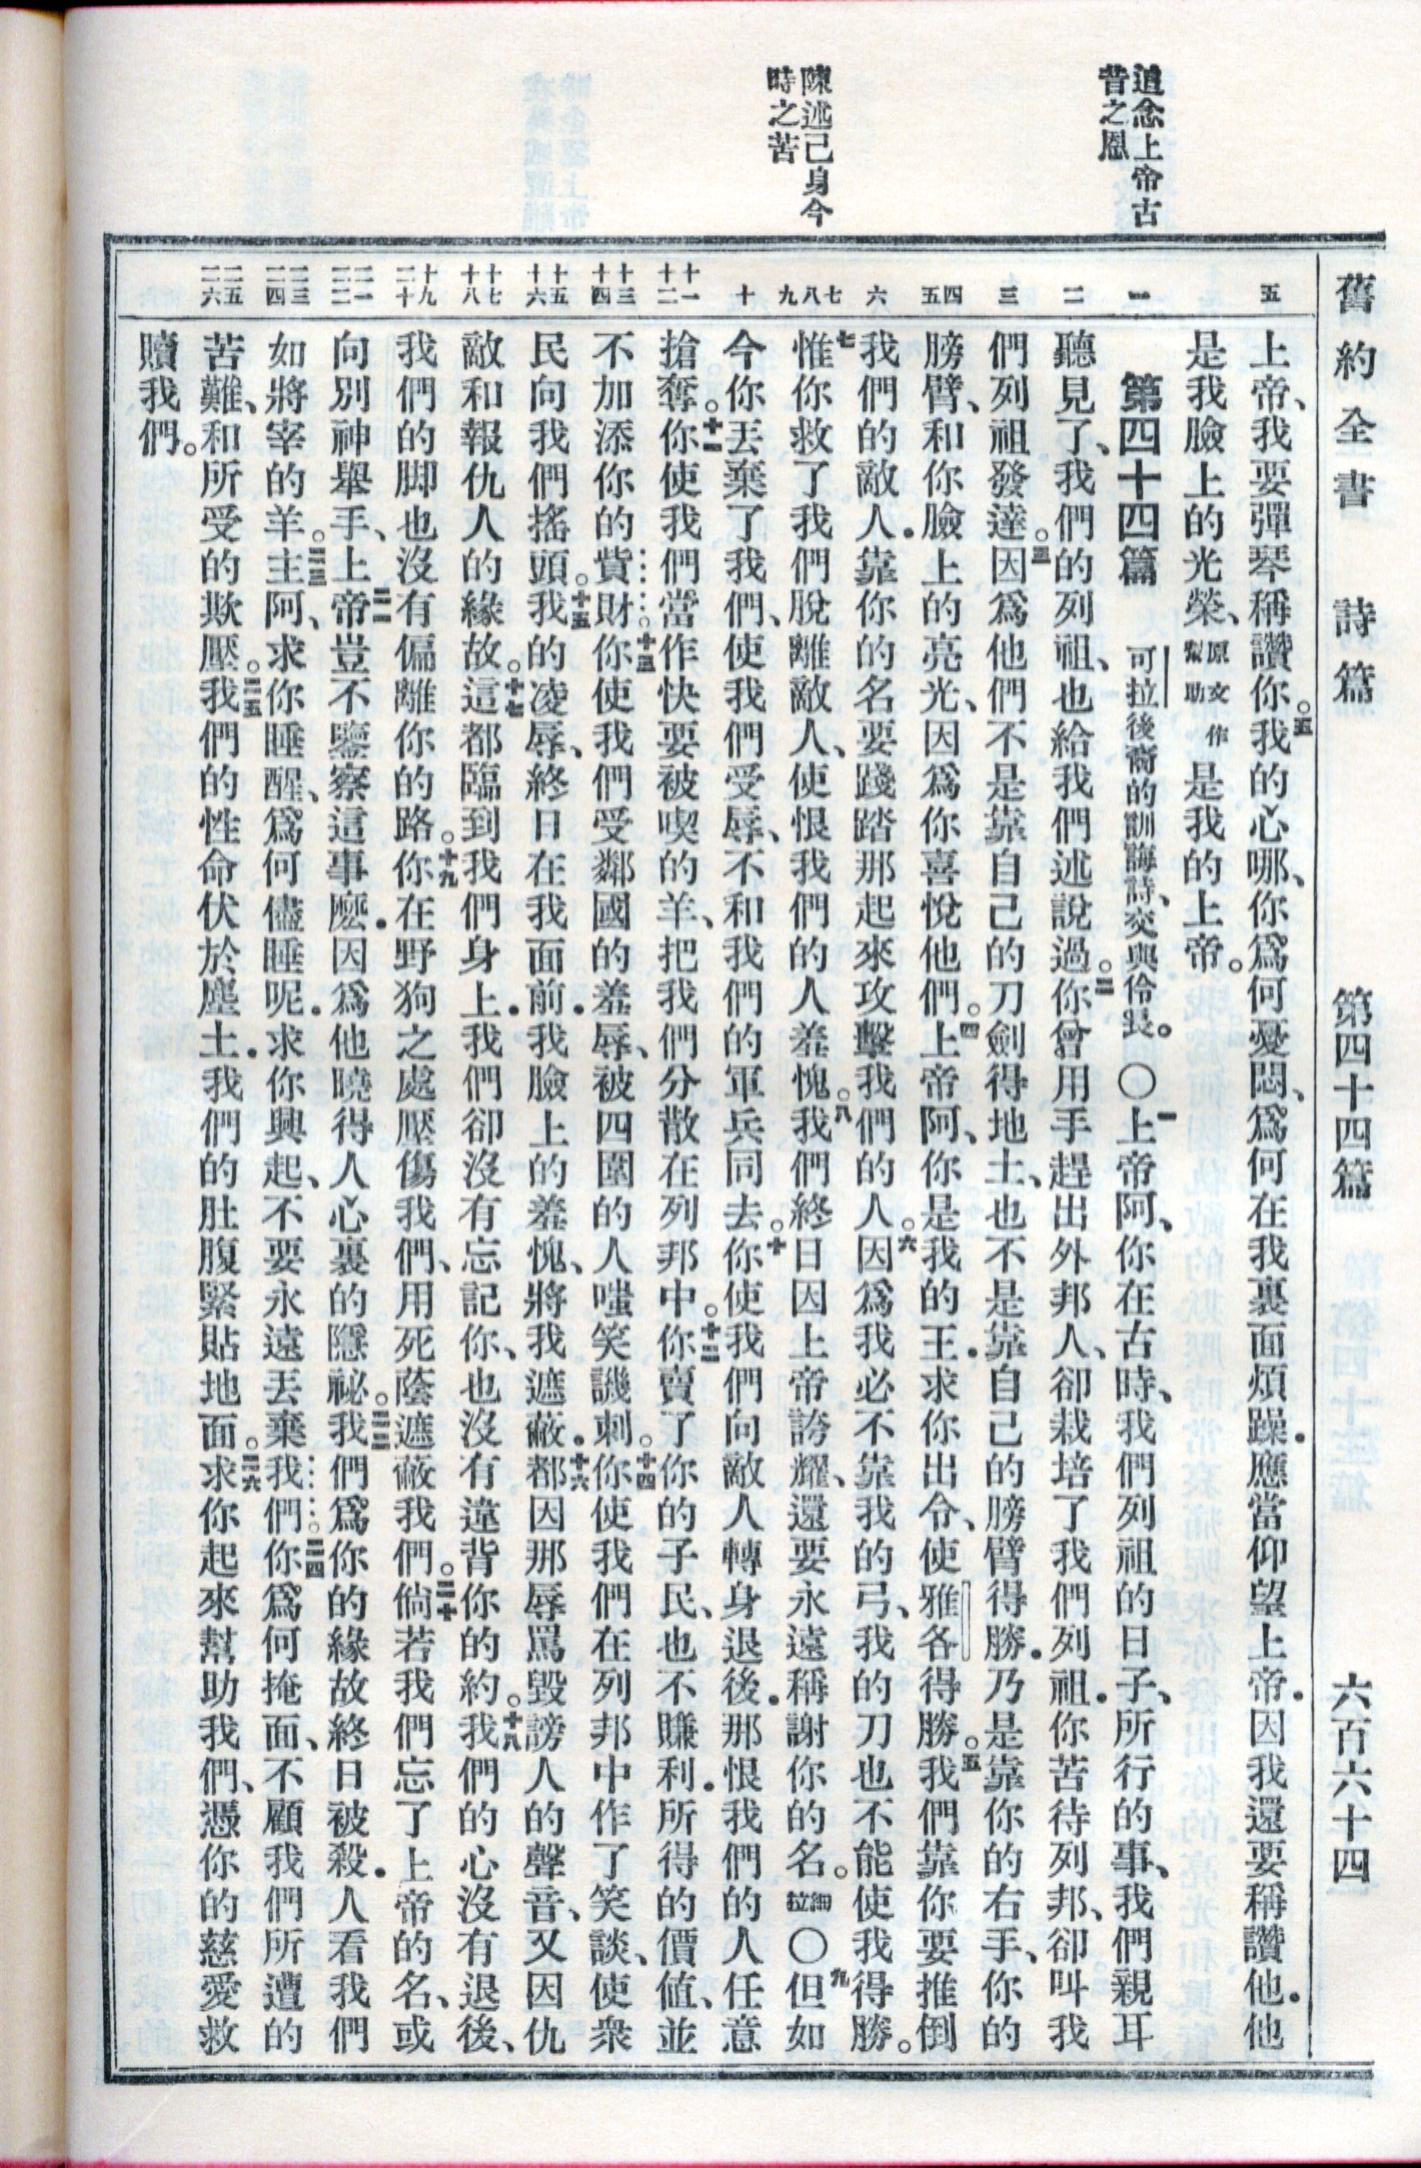 舊約全書　詩篇　第四十四篇　六百六十四
追念上帝古
昔之恩
陳述己身今
時之苦
五
上帝、我要彈琴稱讚你。五我的心哪、你爲何憂悶、爲何在我裏面煩躁．應當仰望上帝．因我還要稱讚他．他
是我臉上的光榮、原文作幫助是我的上帝。
一
第四十四篇　可拉後裔的訓誨詩、交與伶長。〇一上帝阿、你在古時、我們列祖的日子、所行的事、我們親耳
二
聽見了、我們的列祖、也給我們述說過。二你曾用手趕出外邦人、卻栽培了我們列祖．你苦待列邦、卻叫我
三
們列祖發達。三因爲他們不是靠自己的刀劍得地土、也不是靠自己的膀臂得勝．乃是靠你的右手、你的
四五
膀臂、和你臉上的亮光、因爲你喜悅他們。四上帝阿、你是我的王．求你出令、使雅各得勝。五我們靠你要推倒
六
我們的敵人．靠你的名要踐踏那起來攻擊我們的人。六因爲我必不靠我的弓、我的刀也不能使我得勝。
七八九
七惟你救了我們脫離敵人、使恨我們的人羞愧。八我們終日因上帝誇耀、還要永遠稱謝你的名。細拉〇九但如
十
今你丟棄了我們、使我們受辱、不和我們的軍兵同去。十你使我們向敵人轉身退後．那恨我們的人任意
十一十二
搶奪。十一你使我們當作快要被喫的羊、把我們分散在列邦中。十二你賣了你的子民、也不賺利．所得的價值、並
十三十四
不加添你的貲財。十三你使我們受鄰國的羞辱、被四圍的人嗤笑譏刺。十四你使我們在列邦中作了笑談、使衆
十五十六
民向我們搖頭。十五我的凌辱、終日在我面前．我臉上的羞愧、將我遮蔽．十六都因那辱罵毀謗人的聲音、又因仇
十七十八
敵和報仇人的緣故。十七這都臨到我們身上．我們卻沒有忘記你、也沒有違背你的約。十八我們的心沒有退後、
十九二十
我們的脚也沒有偏離你的路。十九你在野狗之處壓傷我們、用死蔭遮蔽我們。二十倘若我們忘了上帝的名、或
二一二二
向別神舉手、二一上帝豈不鑒察這事麽．因爲他曉得人心裏的隱祕。二二我們爲你的緣故終日被殺．人看我們
二三二四
如將宰的羊。二三主阿、求你睡醒、爲何儘睡呢．求你興起、不要永遠丟棄我們。二四你爲何掩面、不顧我們所遭的
二五二六
苦難、和所受的欺壓。二五我們的性命伏於塵土．我們的肚腹緊貼地面。二六求你起來幫助我們、憑你的慈愛救
贖我們。